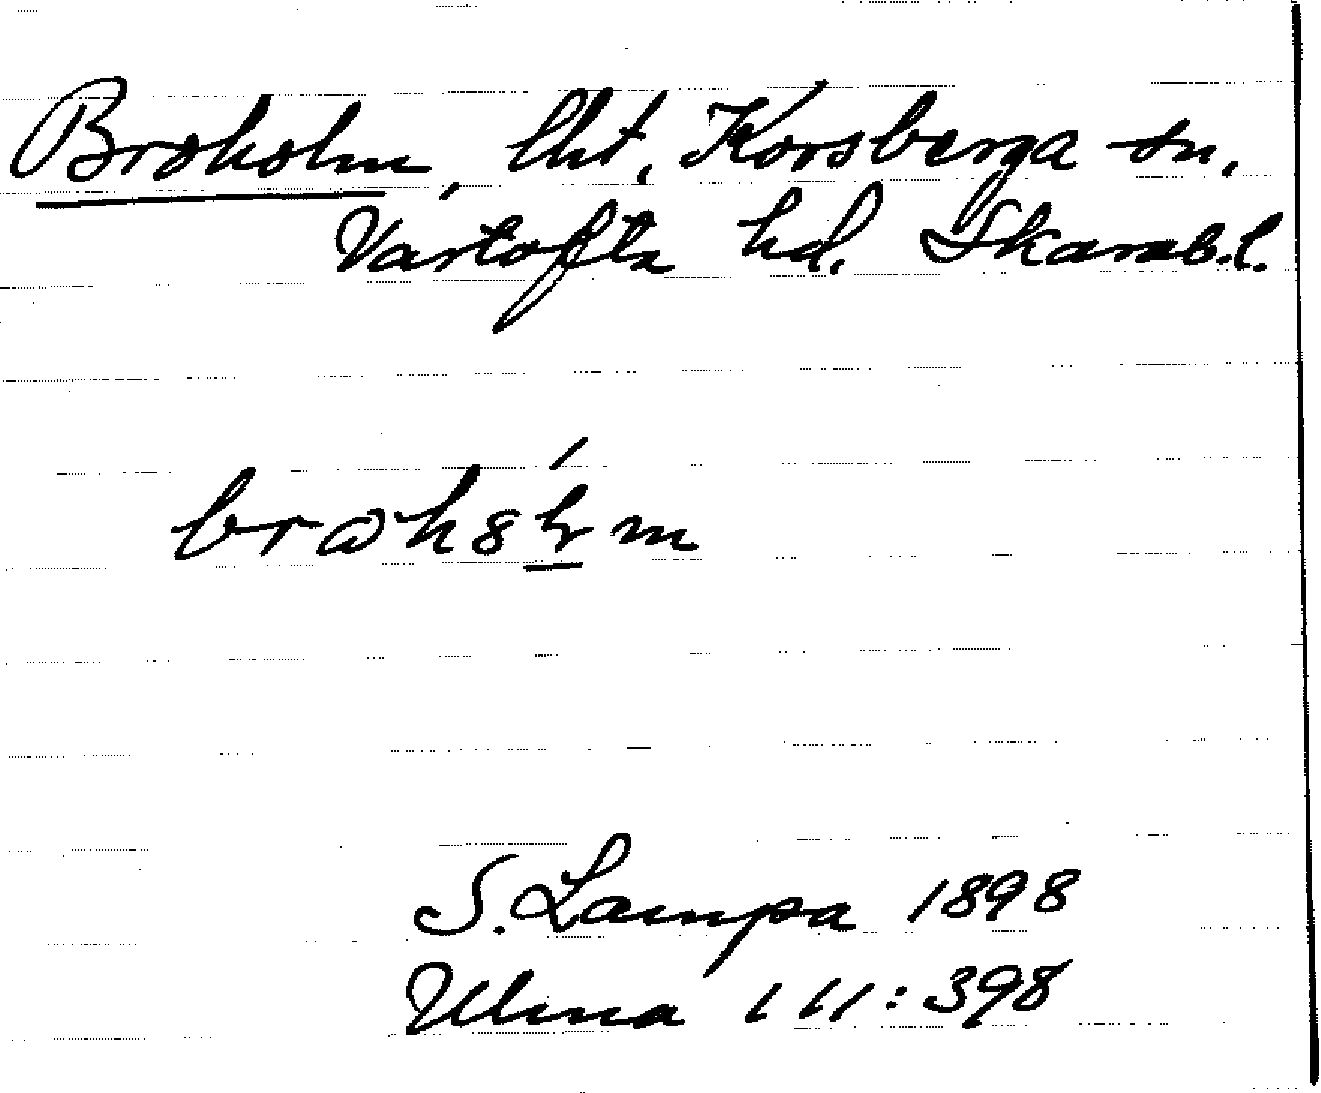 Broholm, lht, Korsberga sn.
Vartofta hd. Skarab.l.
S. Lampa 1898
Ulma 111:398